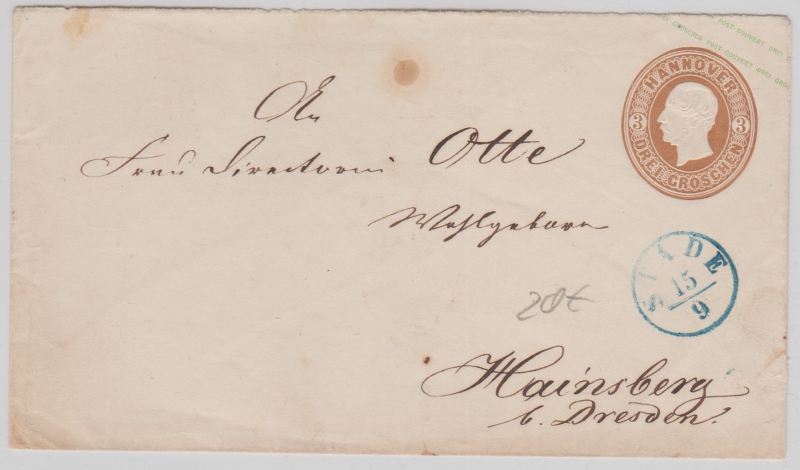 DREI GROSCHEN POST-COUVERT DREI
HANNOVER
3 3
DREI GROSCHEN
An
Frau Directorin Otte
Wohlgeboren
STADE
15
9
20€
Hainsberg
b. Dresden.